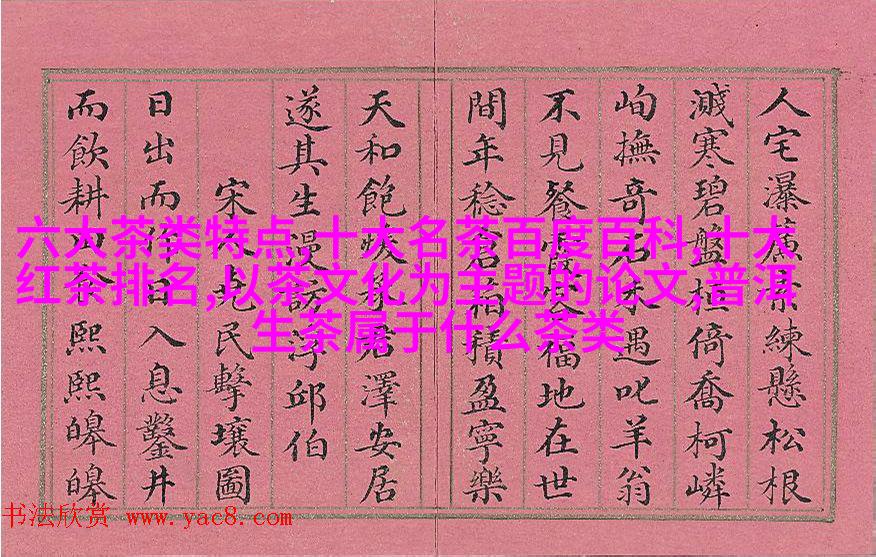 人宅瀑練懸松根
濺寒碧盤桓倚喬柯嶙
峋撫奇石遇叱羊翁
不見餐霞客福地在世
間年稔倉箱積盈寧樂
天和飽煖承君澤安居
遂其生漫訪浮邱伯
宋人堯民擊壤圖
日出而作日入息鑿井
而飲耕田食熙熙皞皞
六大茶类特点,十大名茶百度百科,十大
红茶排名,以茶文化为主题的论文,普洱
生茶属于什么茶类
书法欣赏 www.yac8.com